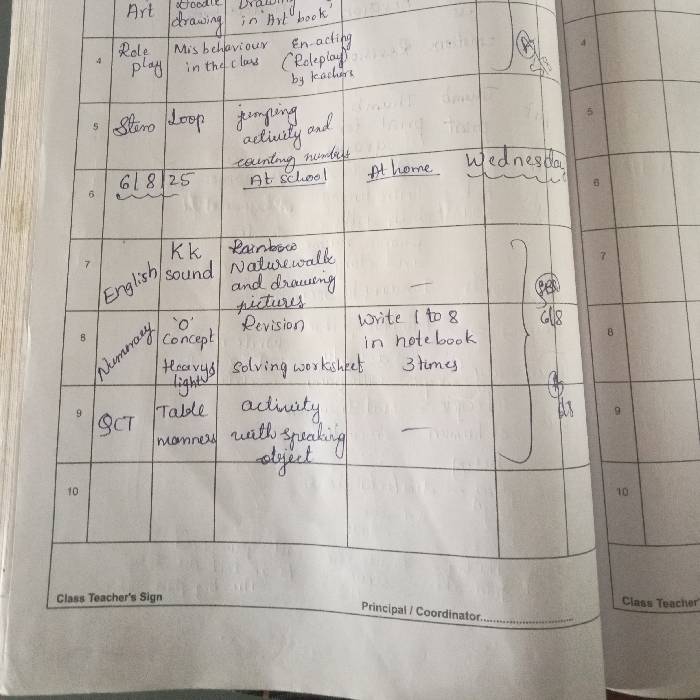 Art Doodle drawing Drawing in Art book
4 Role play Misbehaviour in the class En-acting (Roleplay) by teachers
5 Loop jumping activity and counting numbers
6 6/8/25 At school At home Wednesday
7 English Kk sound Rainbow Nature walk and drawing pictures —
8 Numeracy 'O' Concept Heavy & light Revision solving worksheet Write 1 to 8 in notebook 3 times
6/8
9 Table manners activity with speaking object —
6/8
10
Class Teacher's Sign
Principal / Coordinator
4
5
6
7
8
9
10
Class Teacher'